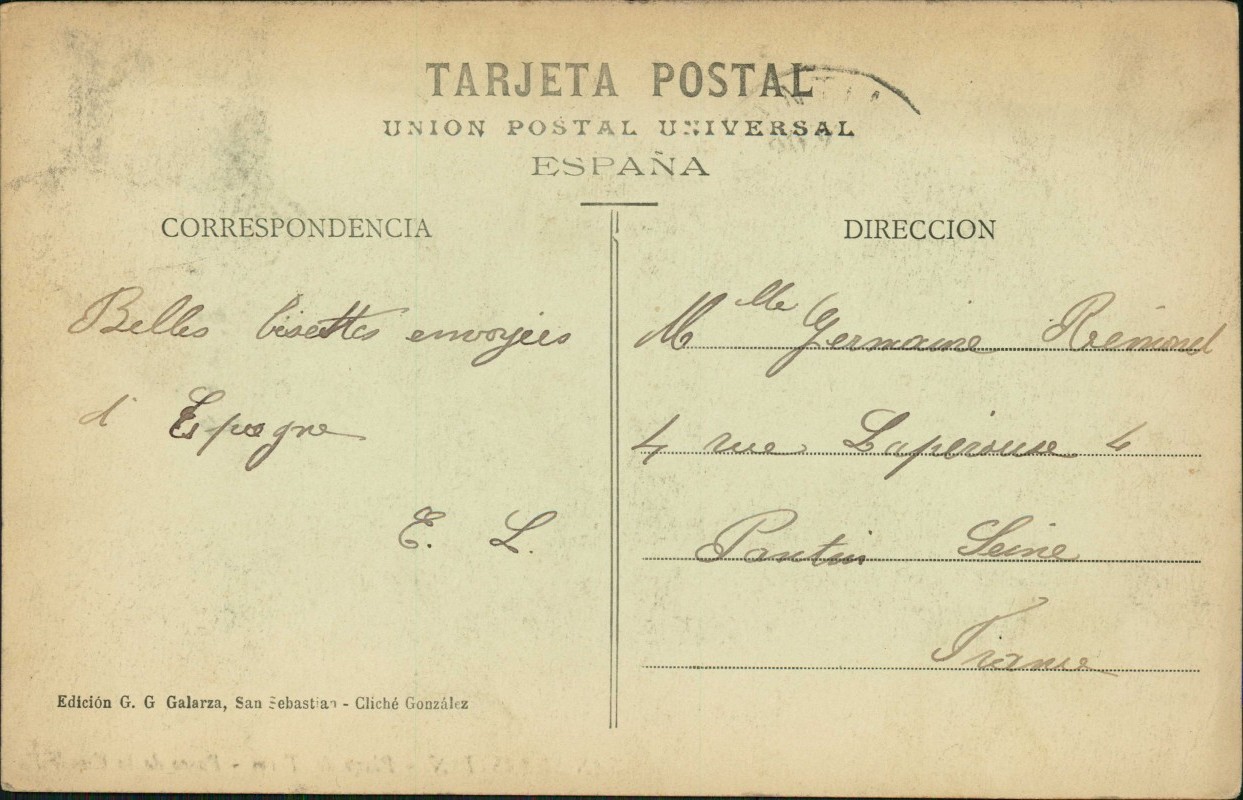 TARJETA POSTAL
UNION POSTAL UNIVERSAL
ESPAÑA
CORRESPONDENCIA
Belles bisettes envoyées
d' Epagne
E. L.
Edición G. G Galarza, San Sebastian - Cliché González
DIRECCION
Mlle Germaine Rémond
4 rue Lapérouse 4
Pantin Seine
France